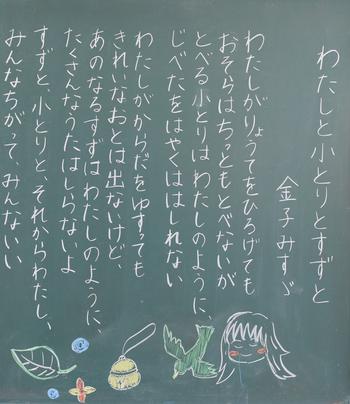 わたしと小とりとすずと
金子みすゞ
わたしがりょうてをひろげても
おそらはちっともとべないが
とべる小とりはわたしのように、
じべたをはやくははしれない
わたしがからだをゆすっても
きれいなおとは出ないけど、
あのなるすずはわたしのように、
たくさんなうたはしらないよ
すずと、小とりと、それからわたし、
みんなちがって、みんないい